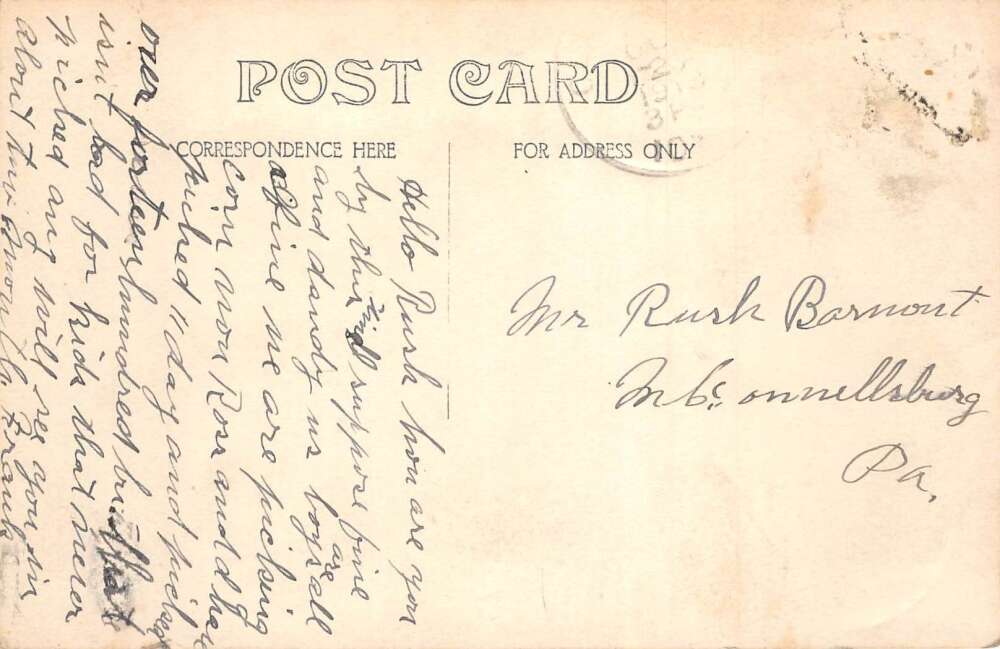 POST CARD
CORRESPONDENCE HERE
FOR ADDRESS ONLY
Hello Rush how are you
by this time suppose fine
and dandy us boys are all
a fine we are picking
corn now Ross and I have
picked 11 day and picked
over forteen hundred bu that
isnt bad for kids that never
picked any will see you in
about two months Frank
Mr Rush Barmont
McConnellsburg
Pa.